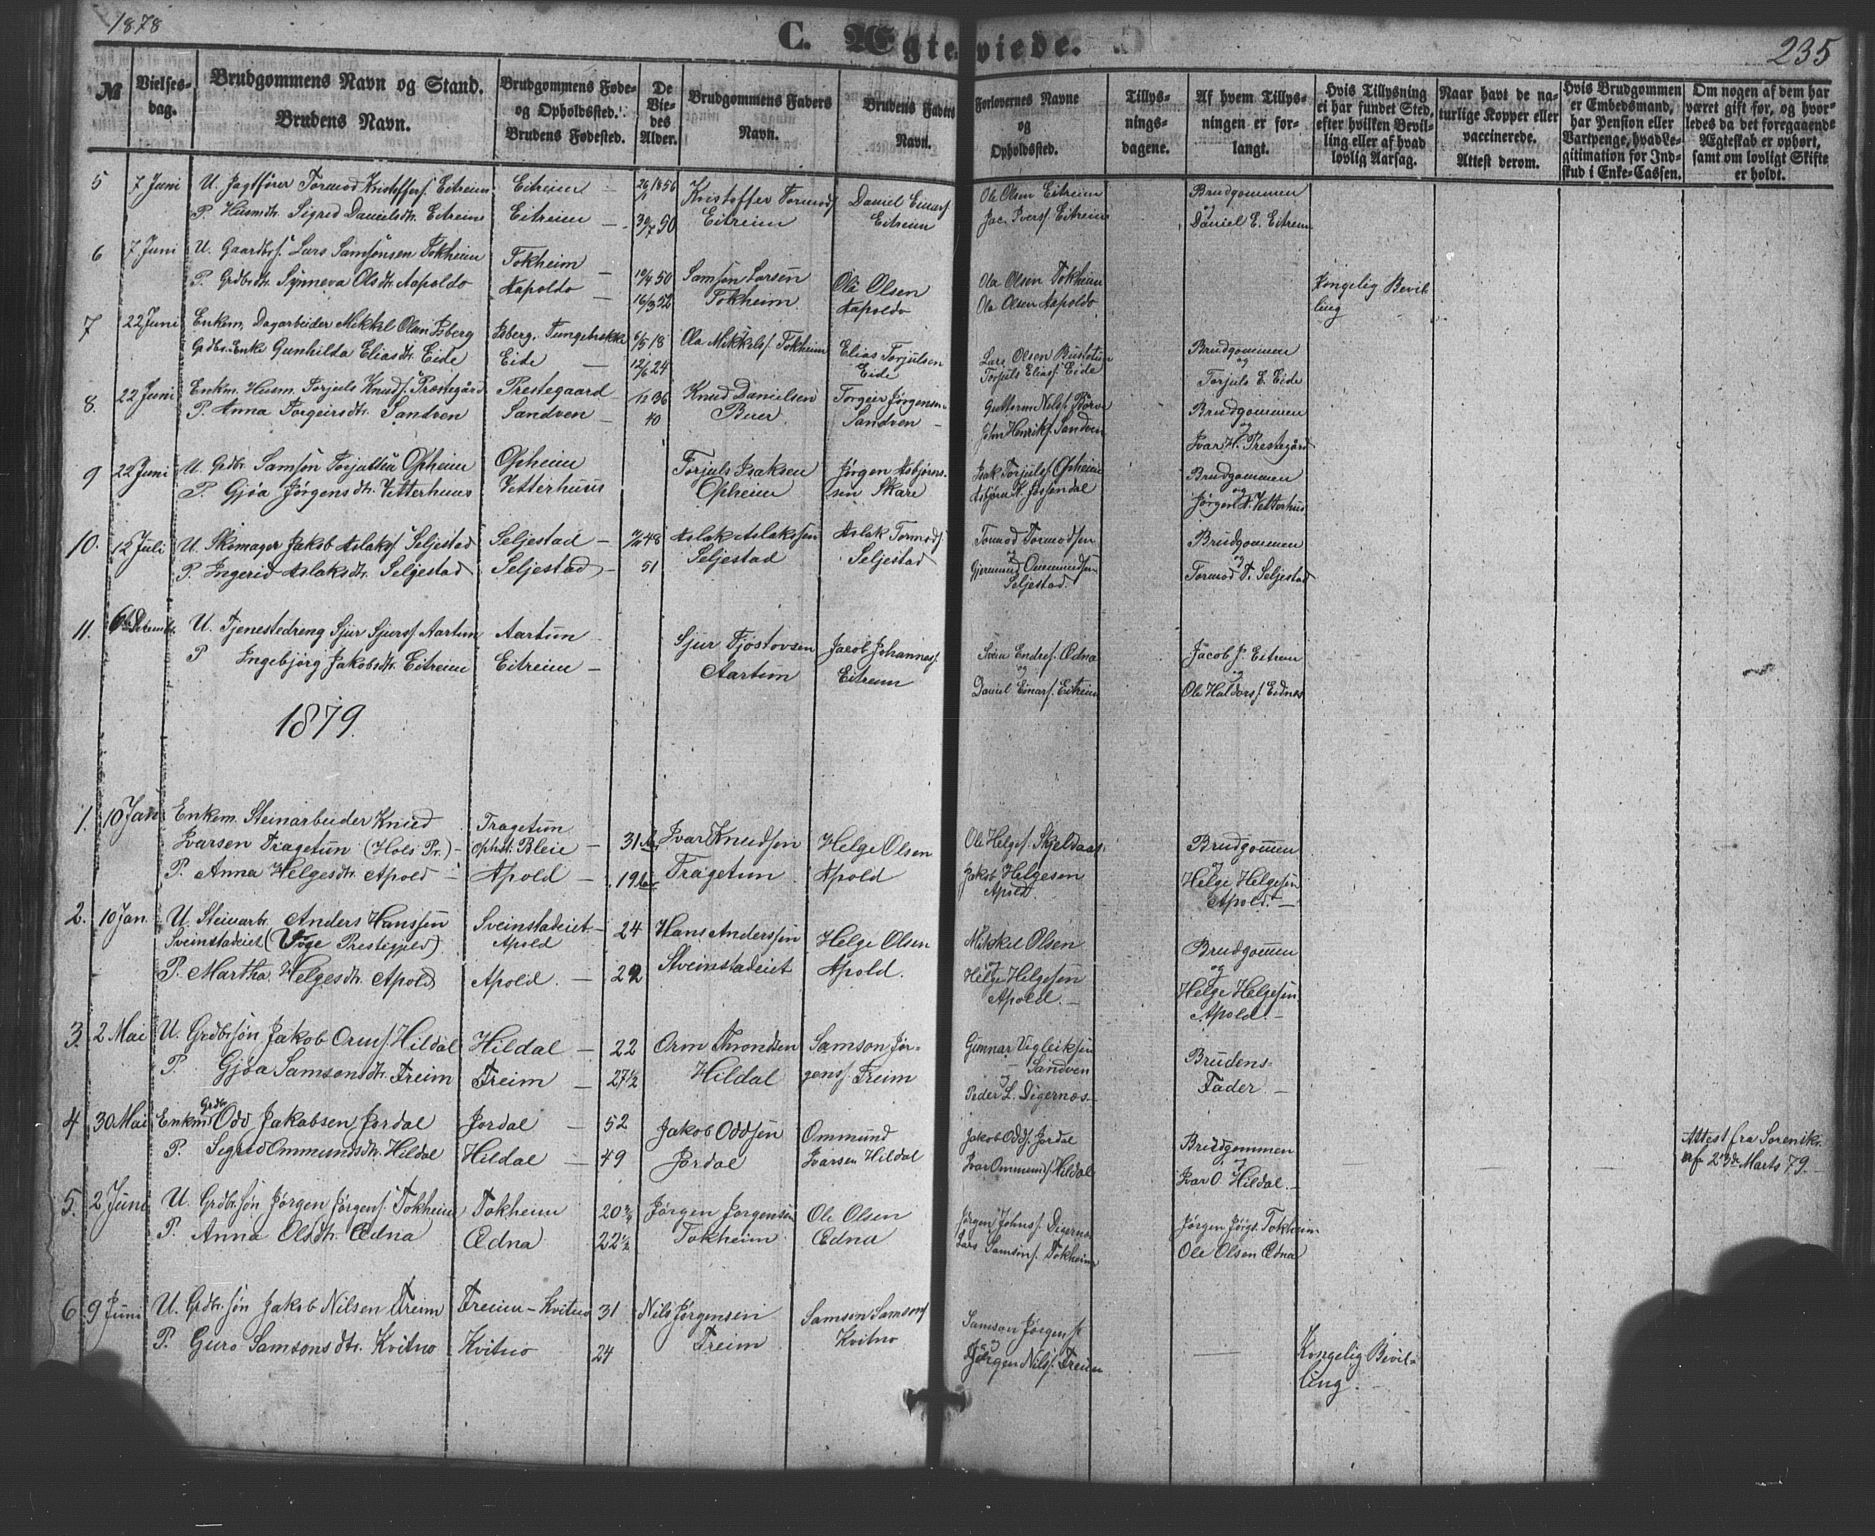 1878
C. Ægteviede.
235
№
Vielses-
dag.
Brudgommens Navn og Stand.
Brudens Navn.
Brudgommens Føde-
og Opholdssted.
Brudens Fødested.
De
Vie-
des
Alder.
Brudgommens Faders
Navn.
Brudens Faders
Navn.
Forlovernes Navne
og
Opholdssted.
Tillys-
nings-
dagene.
Af hvem Tillys-
ningen er for-
langt.
Hvis Tillysning
ei har fundet Sted,
efter hvilken Bevil-
ling eller af hvad
lovlig Aarsag.
Naar havt de na-
turlige Kopper eller
vaccinerede.
Attest derom.
Hvis Brudgommen
er Embedsmand,
har Pension eller
Vartpenge, hvad Le-
gitimation for Ind-
skud i Enke-Cassen.
Om nogen af dem har
været gift før, og hvor-
ledes da det foregaaende
Ægteskab er ophørt,
samt om lovligt Skifte
er holdt.
5 7 Juni U. Jagtfører Tormod Kristoffers. Eitreim Eitreim 26/1 1856 Kristoffer Tormods. Daniel Einars. Ole Olsen Eitreim Brudgommen
P. Husmdtr. Sigrid Danielsdtr. Eitreim Eitreim 30/7 50 Eitreim Eitreim Jac. Ivers. Eitreim og Daniel E. Eitreim
6 7 Juni U. Gaardbrs. Lars Samsonsen Tokheim Tokheim 19/4 50 Samson Larsen Ole Olsen Ola Olsen Tokheim Kongelig Bevil-
P. Grdbrdtr. Synneva Olsdtr. Aapoldo Aapoldo 16/3 52 Tokheim Aapoldo Ole Olsen Aapoldo ling
7 22 Juni Enkem. Dagarbeider Mikkel Olsen Isberg Isberg, 6/5 18 Ola Mikkels. Tokheim Elias Torjulsen Lars Olsen Brudgommen
Grdbr. Enke Gunhilda Eliasdtr. Eide Eide 12/6 24 Eide Torjuls Elias. Eide og Torjuls E. Eide
8. 22 Juni Enkm. Husm. Torjuls Knuds. Prestegård Prestegaard 36 Knud Danielsen Torgeir Jørgensen Guttorm Nils. Brudgommen
P. Anna Torgeirsdtr. Sandven Sandven 40 Sandven John Henriks. Sandven og Ivar H. Prestegård
9 22 Juni U. Grdbr. Samson Torjulsen Opheim Opheim Torjuls Isaksen Jørgen Asbjørns- Isak Torjuls. Opheim Brudgommen
P. Gjøa Jørgensdtr. Vetterhuus Vetterhuus Opheim sen Skare Asbjørn og Jørgen A. Vetterhus
10. 12 Juli U. Skomager Jakob Aslaks. Seljestad Seljestad 48 Aslak Aslakssen Aslak Tormods. Tormod Tormodsen Brudgommen
P. Ingerid Aslaksdtr. Seljestad Seljestad 51 Seljestad Seljestad og Gjermund Ommundsen og Tormod T. Seljestad
Seljestad.
11. 6te Decembr. U. Tjenestedreng Sjur Sjurs. Aartun Aartun Sjur Tjostovsen Jacob Johannes. Svein Endres. Ædna Jacob J. Eitreim
P Ingebjørg Jakobsdtr. Eitreim Eitreim Aartun Eitreim og Daniel Einars. Eitreim og Ole Haldors. Eidnes
1879.
1. 10 Jan Enkem. Steinarbeider Knud Tragetun
Ivarsen Tragetun (Hols Pr.) Ophst. Bleie 31 Aar Ivar Knudsen Helge Olsen Ole Helges. Skjeldaas Brudgommen
P. Anna Helgesdtr. Apold Apold 19 Tragetun Apold Jakob Helgesen Apold og Helge Helgesen Apold.
2. 10 Jan. U. Steinarb. Anders Hanssen Sveinstadeiet 24 Hans Anderssen Helge Olsen Mikkel Olsen Brudgommen
Sveinstadeiet (Voge Prestegjeld) Apold og og
P. Martha Helgesdtr. Apold Apold. 22 Sveinstadeiet Apold. Helge Helgesen Apold Helge Helgesen Apold.
3. 2 Mai U. Grdbrsøn Jakob Orms. Hildal Hildal 22 Orm Throndsen Samson Jør- Gunnar Vigleiksen Sandven Brudens
P. Gjøa Samsonsdtr. Freim Freim 27½ Hildal gens. Freim og Peder L. Digernes Fader.
4 30 Mai Enkm. Grdbr. Odd Jakobsen Jordal Jordal 52 Jakob Oddsen Ommund Jakob Odds. Jordal Brudgommen Attest fra Sorenskr.
P. Sigrid Ommundsdtr. Hildal Hildal 49 Jordal Ivarsen Hildal Ivar Ommunds. Hildal og Ivar O. Hildal. af 23de Marts 79.
5. 2 Juni U. Grdbrsøn Jørgen Jørgens. Tokheim Tokheim 20 ¾ Jørgen Jorgensen Ole Olsen Jørgen Johns. Jørgen Jørgs. Tokheim
P. Anna Olsdtr. Ædna Ædna 22½ Tokheim Ædna Lars Samsons. Tokheim Ole Olsen Ædna
6 9 Juni U. Grdbrsøn Jakob Nilsen Freim Freim - Kvitno 31 Nils Jørgensen Samson Samsons. Samson Jørgens. Kongelig Bevil-
P. Guro Samsonsdtr. Kvitno Kvitno 24 Freim Kvitno og Jørgen Nils. Freim ling.